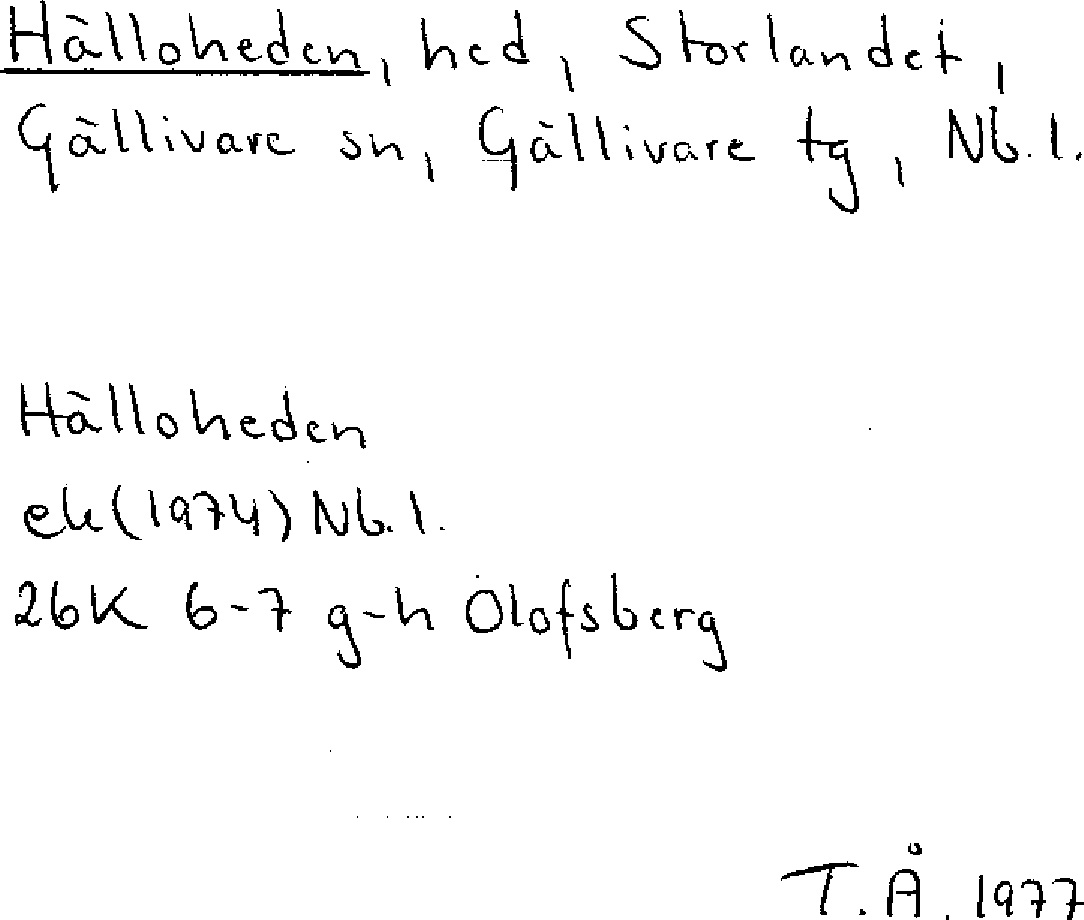 Hälloheden, hed, Storlandet,
Gällivare sn, Gällivare tg, Nb. l.
Hälloheden
ek (1974) Nb. l.
26K 6-7 g-h Olofsberg
T. Å. 1977